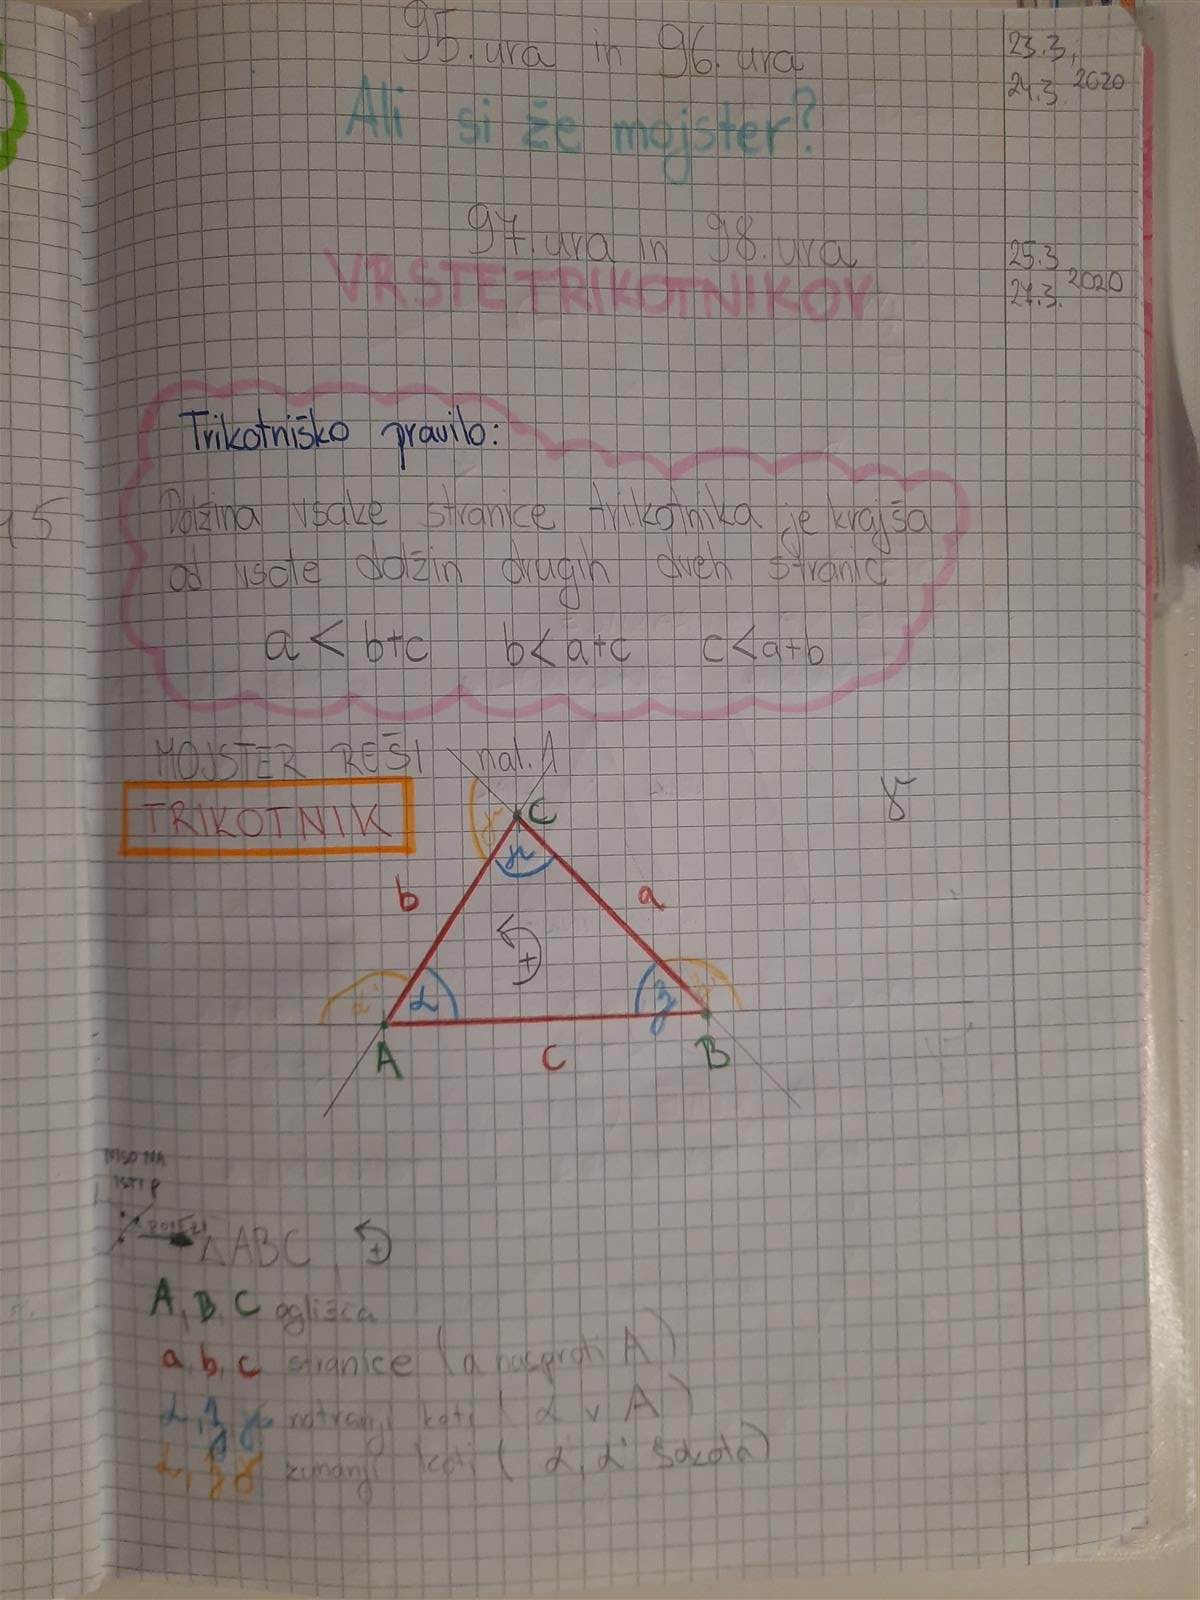 95. ura in 96. ura
23.3.,
24.3. 2020
Ali si že mojster?
97. ura in 98. ura
25.3.
27.3. 2020
VRSTE TRIKOTNIKOV
Trikotniško pravilo:
Dolžina vsake stranice trikotnika je krajša
od vsote dolžin drugih dveh stranic
a < b+c b<a+c c<a+b
MOJSTER REŠI nal. A
TRIKOTNIK
C
γ
γ
b
a
+
α'
α
β
A
c
B
15
NISO NA
ISTI P
△ABC +
A, B, C oglišča
a, b, c stranice (a nasproti A)
α, β, γ notranji koti (α v A)
α, β, γ zunanji koti (α, α' sokota)